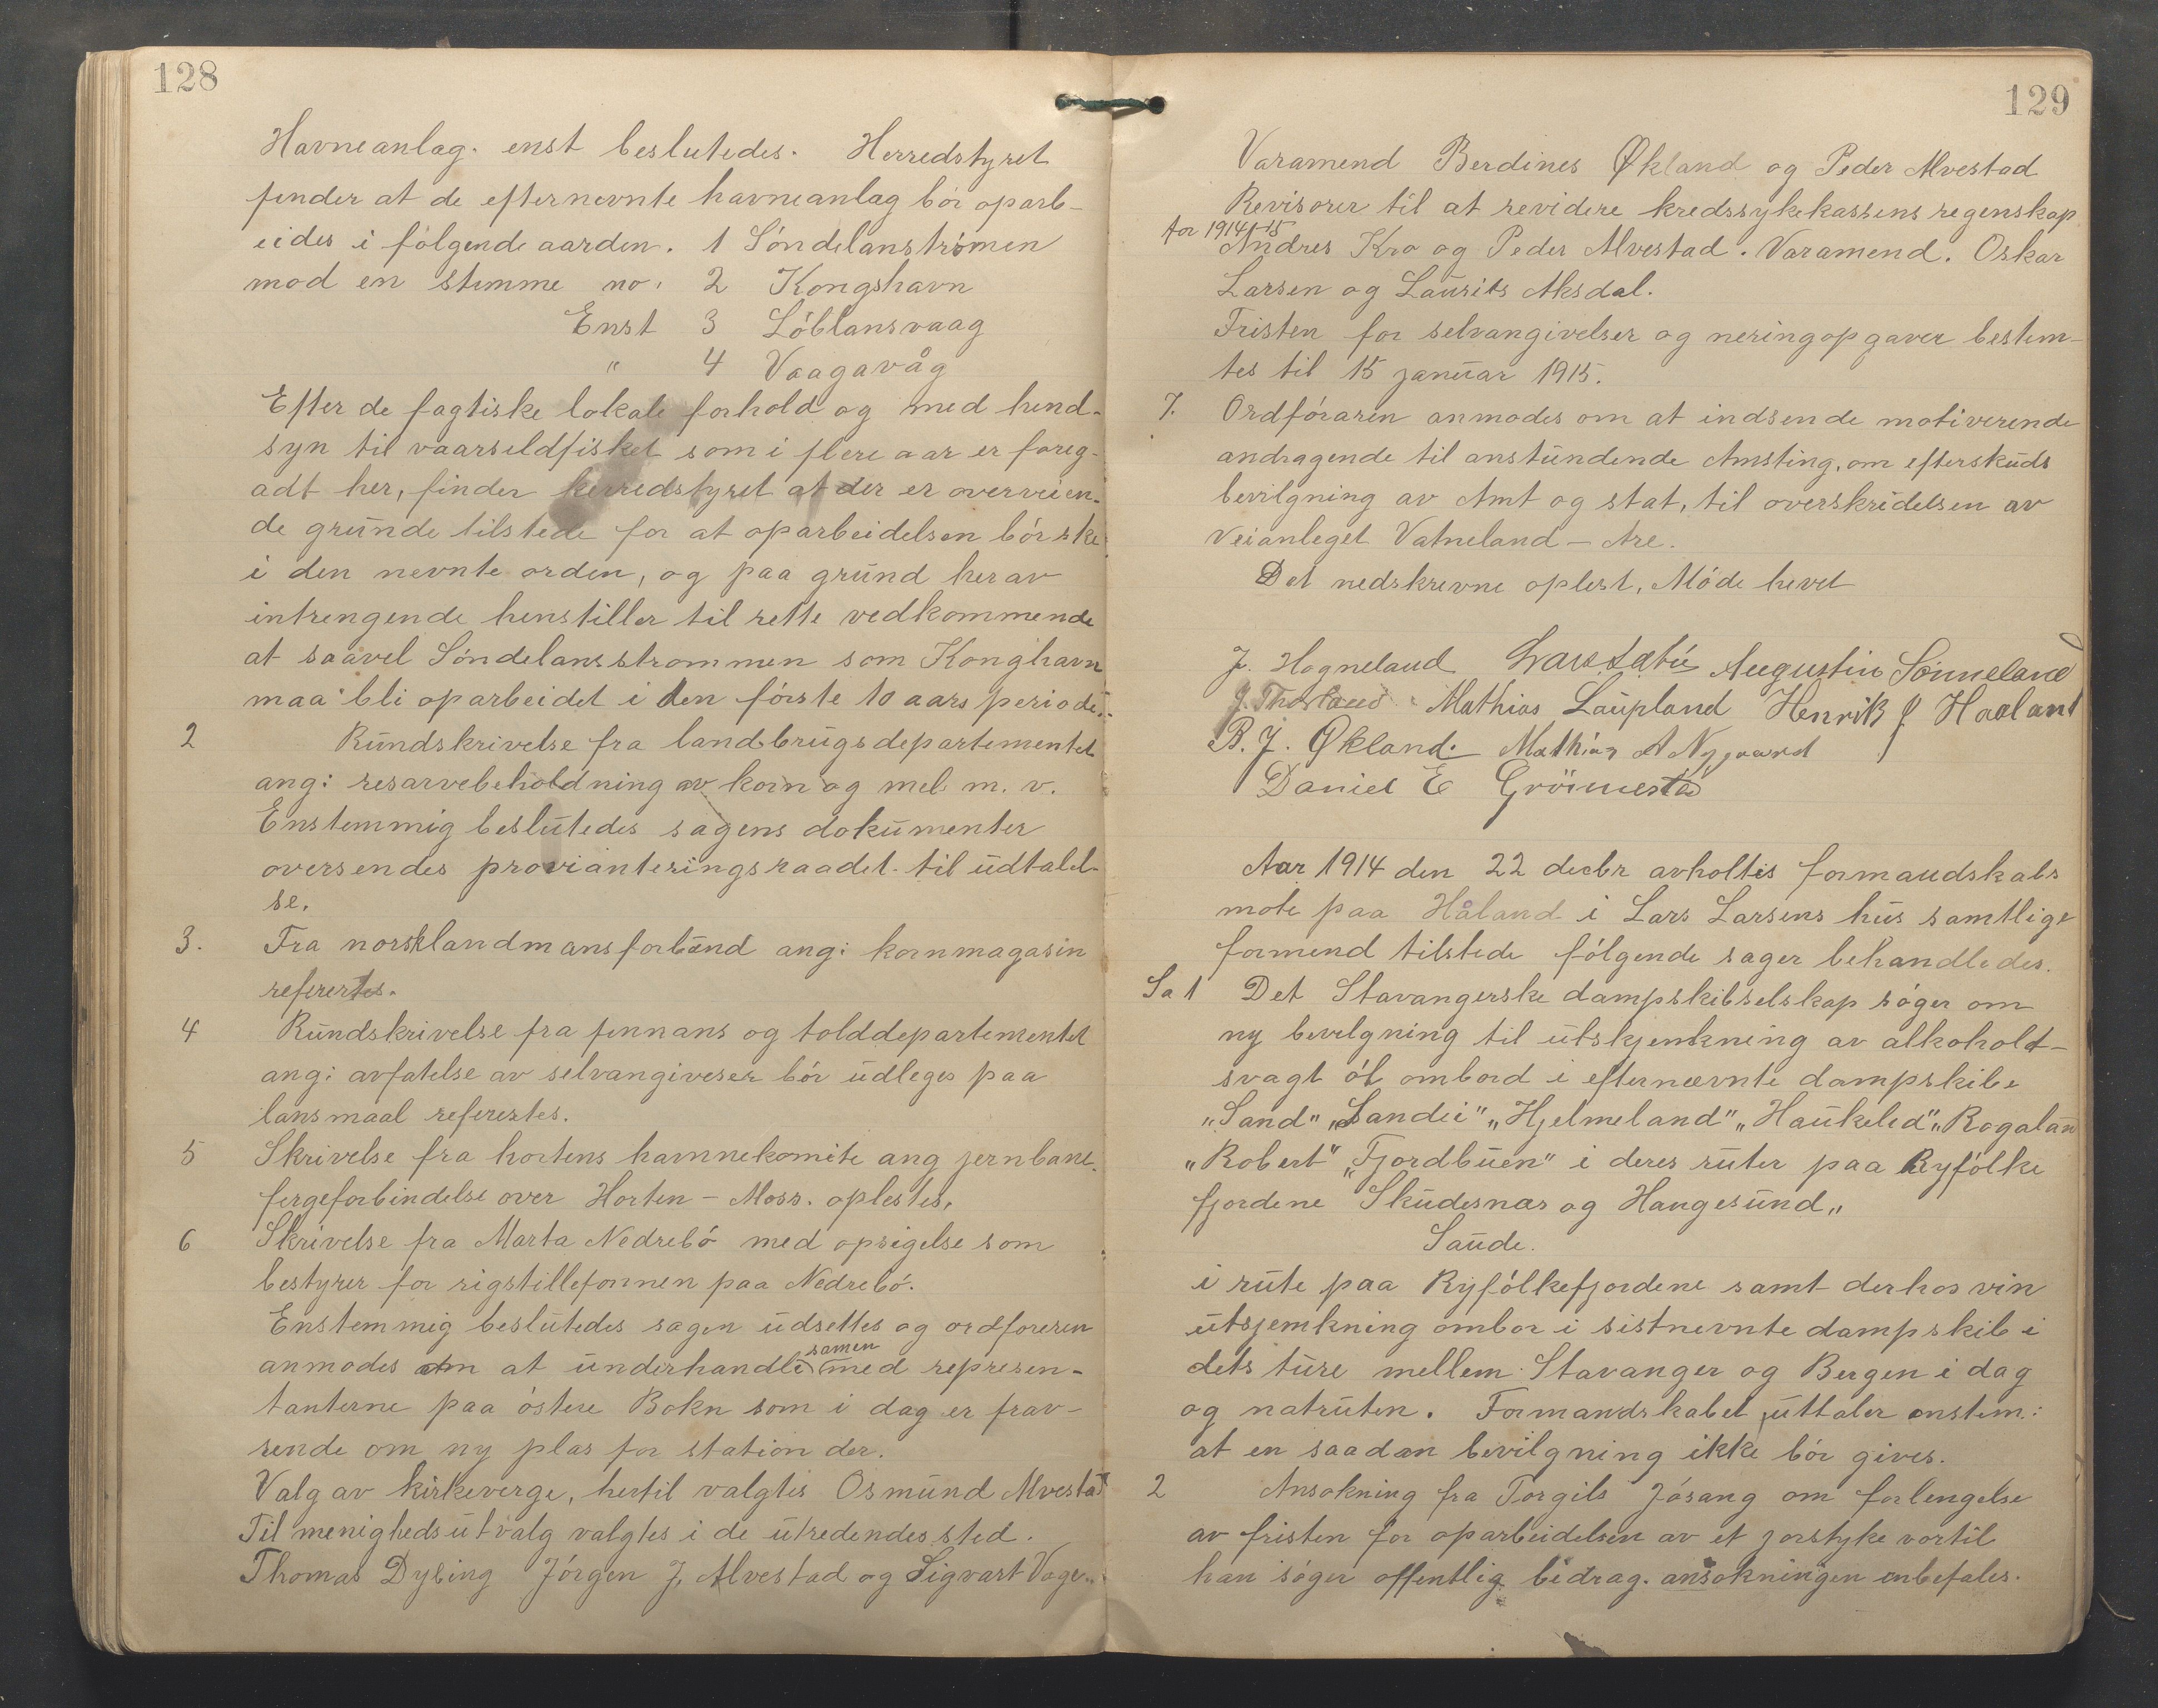 128
Havneanlag. enst beslutedes. Herredstyret
finder at de efternevnte havneanlag bör oparb-
eides i følgende aarden. 1 Söndelanströmen
mod en stemme no. 2 Kongshavn
Enst 3 Löblansvaag
" 4 Vaagavåg
Efter de fagtiske lokale forhold og med hend-
syn til vaarseldfisket som i flere aar er foreg-
adt her, finder herredstyret at der er overveien-
de grunde tilstede for at oparbeidelsen bör ske
i den nevnte orden, og paa grund herav
intrengende henstiller til rette vedkommende
at saavel Söndelansstrommen som Konghavn
maa bli oparbeidet i den förste 10 aars periode.-
2 Rundskrivelse fra landbrugsdepartementet
ang: resarvebeholdning av korn og mel m. v.
Enstemmig beslutedes sagens dokumenter
oversendes provianteringsraadet til udtalel-
se.
3. Fra norsklandmansforbund ang: kornmagasin
refertes.
4 Rundskrivelse fra finnans og tolddepartementet
ang: avfatelse av selvangiveser bör udleges paa
lansmaal referertes.
5 Skrivelse fra hortens havnnekomite ang jernbane-
fergeforbindelse over Horten - Moss. oplestes,
6 Skrivelse fra Marta Nedrebö med opsigelse som
bestyrer for rigstillefonnen paa Nedrebö.
Enstemmig beslutedes sagen udsettes og ordforeren
anmodes om at underhandle samen med represen-
tanterne paa östere Bokn som i dag er frav-
rende om ny plas for station der.
Valg av kirkeverge, hertil valgtes Osmund Alvestad
Til menighedsutvalg valgtes i de utredendes sted.
Thomas Dybing Jörgen J. Alvestad og Sigvart Vage..
129
Varamend Berdines Økland og Peder Alvestad
Revisorer til at revidere kredssykekassens regenskap
for 1914/15
Andres Kro og Peder Alvestad. Varamend. Oskar
Larsen og Laurits Aksdal.
Fristen for selvangivelser og neringopgaver bestem-
tes til 15 januar 1915.
7. Ordföraren anmodes om at indsende motiverende
andragende til anstundende Amsting, om efterskuds
bevilgning av Amt og stat, til overskridelsen av
veianleget Vatneland - Are.
Det nedskrevne oplest, Möde hevet
J. Hogneland Augustin Sönneland
Mathias Laupland Henrik J Haaland
B. J. Økland. Mathias A Nygaard
Daniel E Grönnestad
Aar 1914 den 22 decbr avholtes formandskabs
mote paa Håland i Lars Larsens hus samtlige
formend tilstede fölgende sager behandledes.
Sa 1 Det Stavangerske dampskibselskap söger om
ny bevelgning til utskjenkning av alkohold-
svagt öl ombord i efternævnte dampskibe
"Sand" "Sandei" "Hjelmeland" "Haukelid" "Rogalan
"Robert" "Fjordbuen" i deres ruter paa Ryfölke
fjordene Skudesnas og Haugesund"
Saude.
i rute paa Ryfölkefjordene samt derhos vin
utsjemkning ombor i sistnevnte dampskib i
dets ture mellem Stavanger og Bergen i dag
og natruten. Formandskabet uttaler enstem:
at en saadan bevilgning ikke bör gives.
2 Ansokning fra Torgils Jösang om forlengelse
av fristen for oparbeidelsen av et jorstyke vortil
han söger offentlig bidrag. ansokningen anbefales.